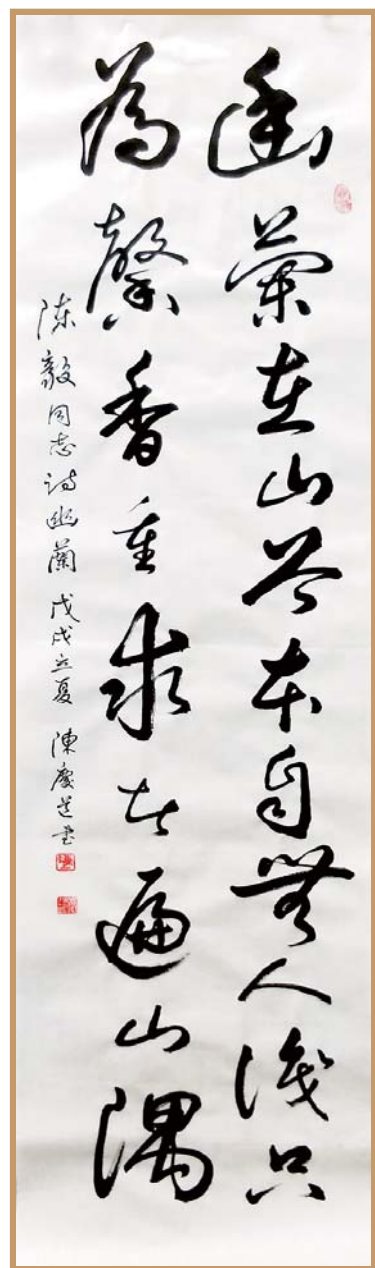 幽蘭在山谷本自無人識只
為馨香重求者遍山隅
陈毅同志诗幽蘭 戊戌立夏 陳慶道书